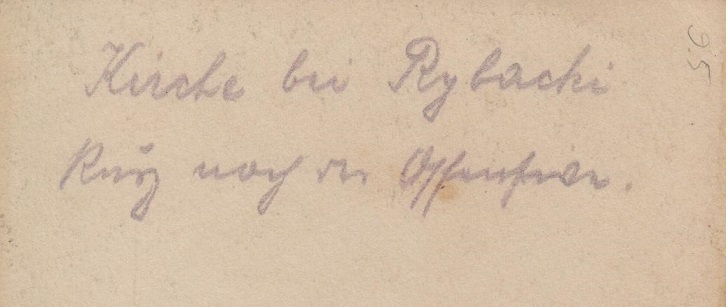 Kirche bei Rybacki
kurz nach der Offensive.
95